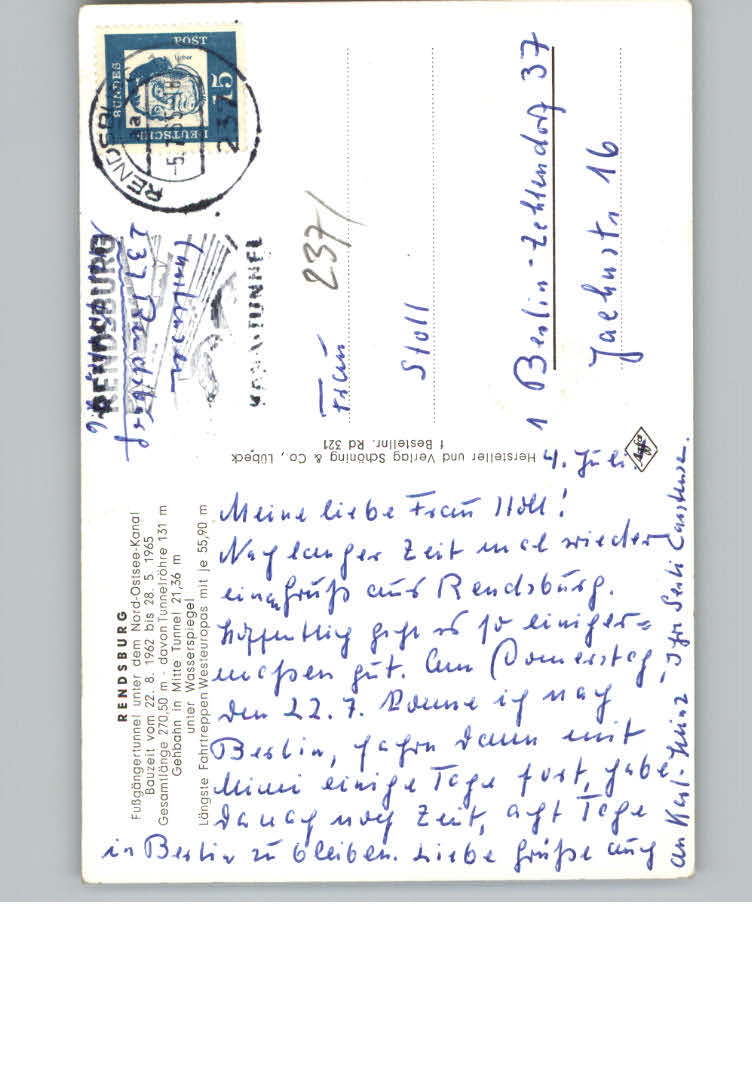 RENDSBURG
Fußgängertunnel unter dem Nord-Ostsee-Kanal
Bauzeit vom 22. 8. 1962 bis 28. 5. 1965
Gesamtlänge 270,50 m - davon Tunnelröhre 131 m
Gehbahn in Mitte Tunnel 21,36 m
unter Wasserspiegel
Längste Fahrtreppen Westeuropas mit je 55,90 m
4. Juli
Meine liebe Frau Stoll!
Nach langer Zeit mal wieder
einen Gruß aus Rendsburg.
Hoffentlich geht es so einiger=
maßen gut. Am Donnerstag,
den 22.7. komme ich nach
Berlin, fahre dann mit
Mimi einige Tage fort, habe
danach noch Zeit, acht Tage
in Berlin zu bleiben. Liebe Grüße auch
an Karl-Heinz Ihre Carstensen.
Hersteller und Verlag Schöning & Co., Lübeck
1 Bestellnr. Rd 321
Agfa
DEUTSCHE
BUNDES
POST
15
RENDSBURG
237
RENDSBURG
KANALTUNNEL
Carstensen
237 Rendsburg
237/
Frau
Stoll
1 Berlin-Zehlendorf 37
Jaehnstr. 16